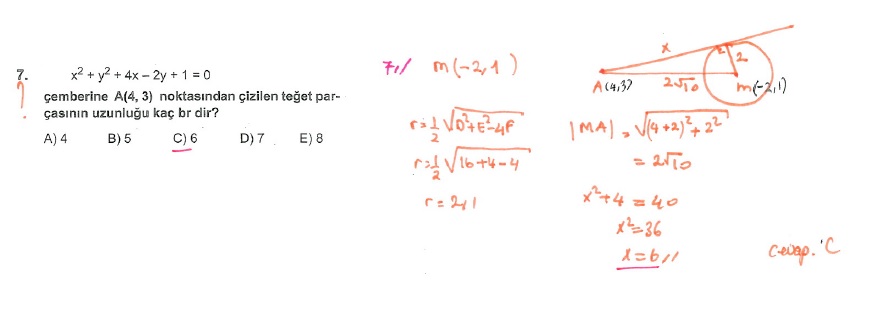 7. x² + y² + 4x – 2y + 1 = 0
?
çemberine A(4, 3) noktasından çizilen teğet par-
çasının uzunluğu kaç br dir?
A) 4 B) 5 C) 6 D) 7 E) 8
7,//
m(-2,1)
r=1/2 √D²+E²-4F
r=1/2 √16+4-4
r=2//
x
2
A(4,3)
2√10
m(-2,1)
|MA| = √(4+2)²+2²
= 2√10
x²+4 = 40
x²=36
x=6//
Cevap. C